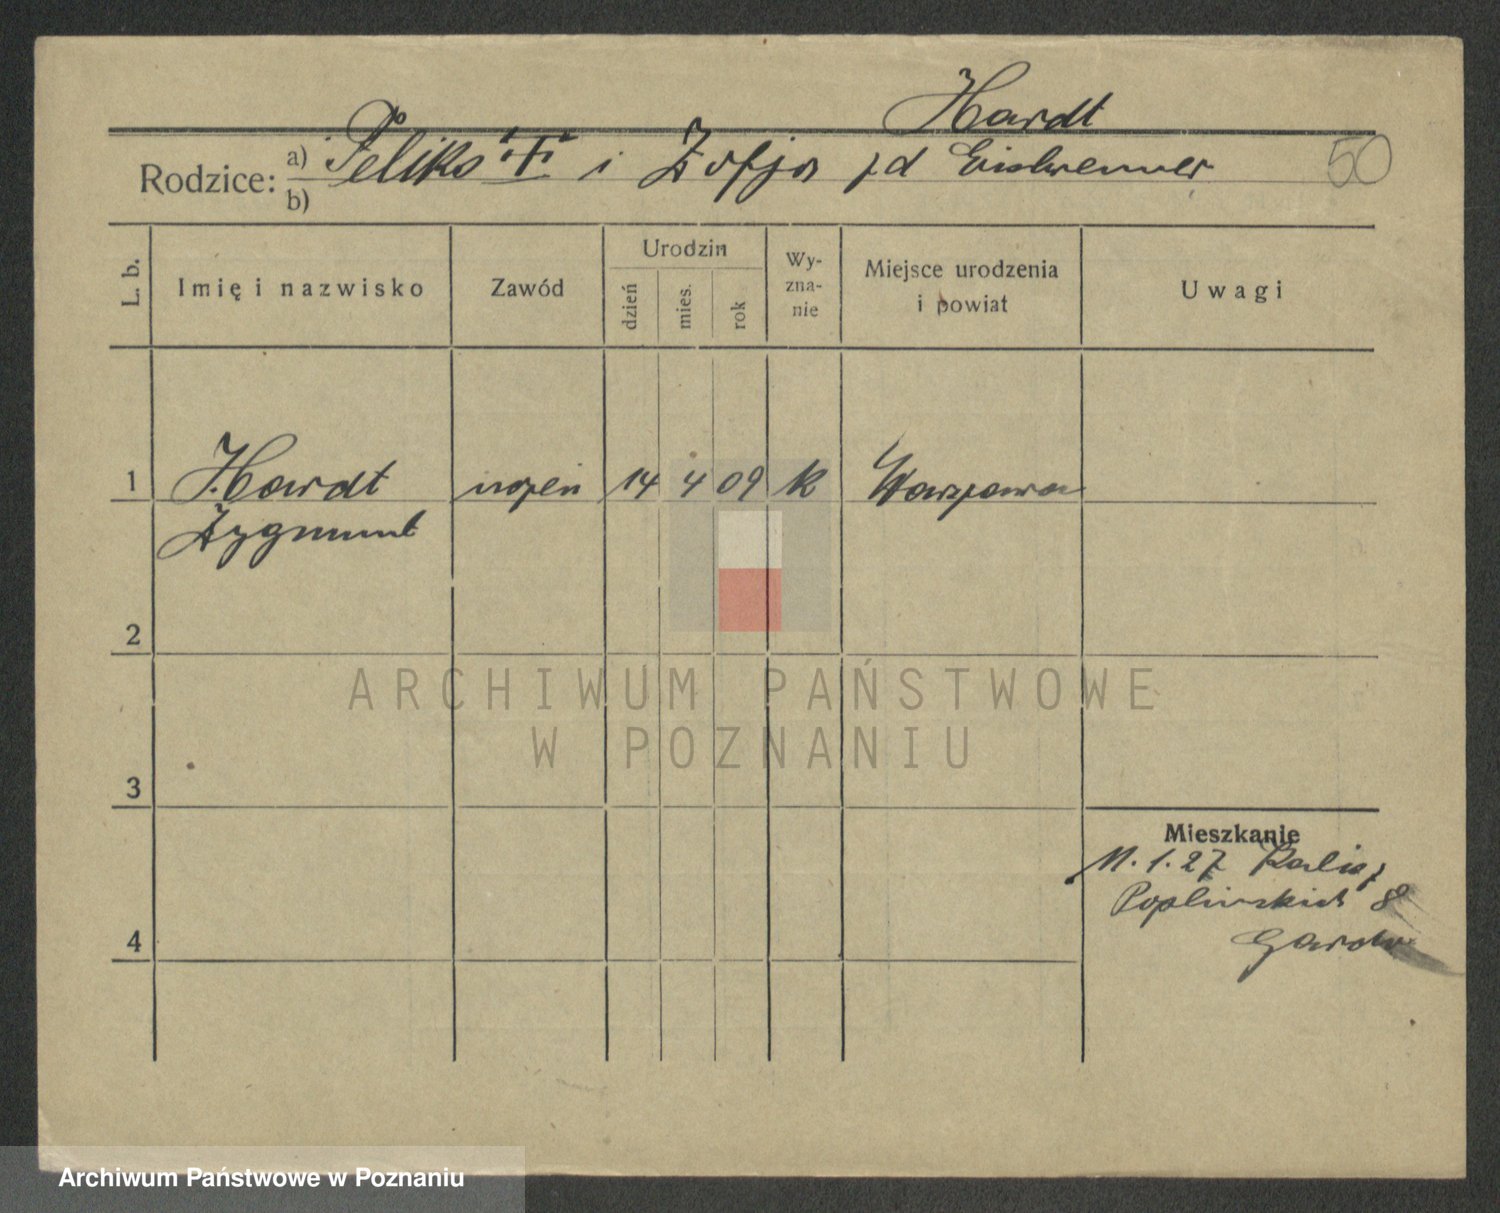 Hardt
Rodzice: a) Feliks i Zofja zd
b)
50
L. b.
Imię i nazwisko
Zawód
Urodzin
dzień
mies.
rok
Wy-
zna-
nie
Miejsce urodzenia
i powiat
Uwagi
1 Hardt uczeń 14 4 09 k Warszawa
Zygmunt
2
3
4
Mieszkanie
11.1.27 Kalisz
8
ARCHIWUM PAŃSTWOWE
W POZNANIU
Archiwum Państwowe w Poznaniu